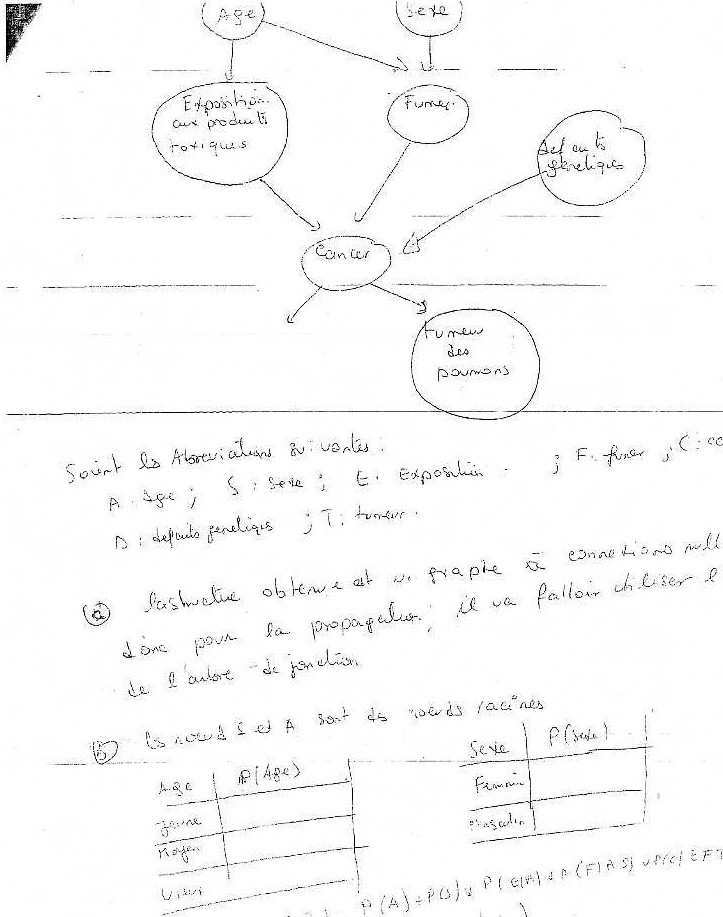 Age
Sexe
Exposition
aux produits
toxiques
Fumer
defauts
genetiques
Cancer
tumeur
des
poumons
Soient les Abreviations suivantes :
A : Age ; S : Sexe ; E : Exposition ; F : fumer ; C :
D : defauts genetiques ; T : tumeur.
(a) obtenue est un graphe à connexions mult
donc pour la propagation, il va falloir utiliser l
de l'arbre de jonction
(b) les noeuds S et A sont des noeuds racines
Age P(Age)
Jeune
Moyen
Vieux
Sexe P(Sexe)
Feminin
Masculin
P(A) P(S) P(E|A) P(F|A S)